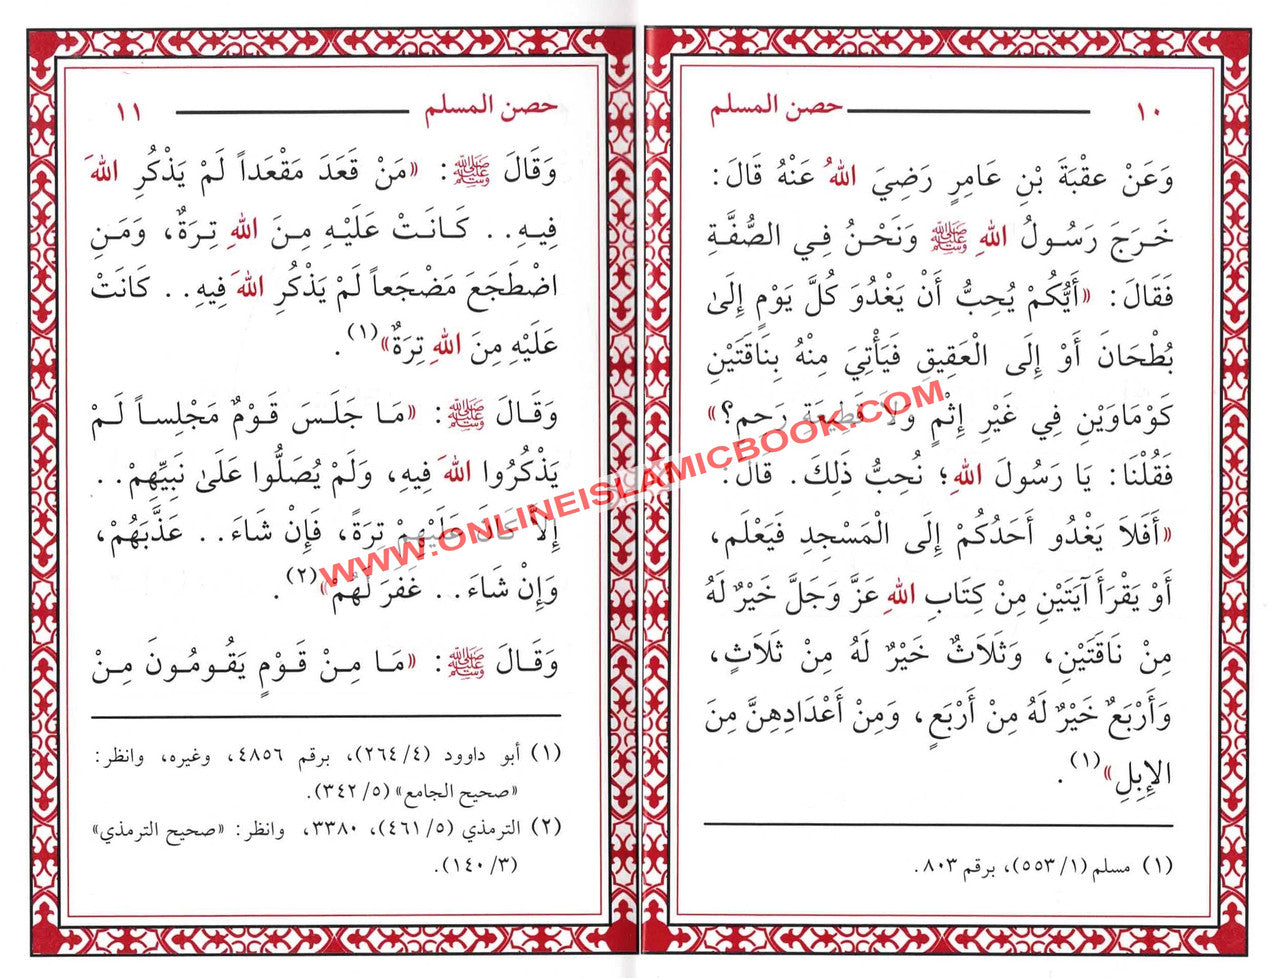 ١٠ حصن المسلم
وَعَنْ عقْبَةَ بْنِ عَامِرٍ رَضِيَ اللهُ عَنْهُ قَالَ:
خَرَجَ رَسُولُ اللهِ ﷺ وَنَحْنُ فِي الصُّفَّةِ
فَقَالَ: «أَيُّكُمْ يُحِبُّ أَنْ يَغْدُوَ كُلَّ يَوْمٍ إِلَىٰ
بُطْحَانَ أَوْ إِلَى الْعَقِيقِ فَيَأْتِيَ مِنْهُ بِنَاقَتَيْنِ
كَوْمَاوَيْنِ فِي غَيْرِ إِثْمٍ وَلا قَطِيعَةِ رَحِم؟»
فَقُلْنَا: يَا رَسُولَ اللهِ؛ نُحِبُّ ذَلِكَ. قَالَ:
«أَفَلَا يَغْدُو أَحَدُكُمْ إِلَى الْمَسْجِدِ فَيَعْلَم،
أَوْ يَقْرَأَ آيَتَيْنِ مِنْ كِتَابِ اللهِ عَزَّ وَجَلَّ خَيْرٌ لَهُ
مِنْ نَاقَتَيْنِ، وَثَلَاثٌ خَيْرٌ لَهُ مِنْ ثَلَاثٍ،
وَأَرْبَعٌ خَيْرٌ لَهُ مِنْ أَرْبَعٍ، وَمِنْ أَعْدَادِهِنَّ مِنَ
الإِبِلِ»(١).
(١) مسلم (١/ ٥٥٣)، برقم ٨٠٣.
حصن المسلم ١١
وَقَالَ ﷺ: «مَنْ قَعَدَ مَقْعَداً لَمْ يَذْكُرِ اللهَ
فِيهِ.. كَانَتْ عَلَيْهِ مِنَ اللهِ تِرَةٌ، وَمَنِ
اضْطَجَعَ مَضْجَعاً لَمْ يَذْكُرِ اللهَ فِيهِ.. كَانَتْ
عَلَيْهِ مِنَ اللهِ تِرَةٌ»(١).
وَقَالَ ﷺ: «مَا جَلَسَ قَوْمٌ مَجْلِساً لَمْ
يَذْكُرُوا اللهَ فِيهِ، وَلَمْ يُصَلُّوا عَلَىٰ نَبِيِّهِمْ..
إِلاَّ كَانَ عَلَيْهِمْ تِرَةً، فَإِنْ شَاءَ.. عَذَّبَهُمْ،
وَإِنْ شَاءَ.. غَفَرَ لَهُمْ»(٢).
وَقَالَ ﷺ: «مَا مِنْ قَوْمٍ يَقُومُونَ مِنْ
(١) أبو داوود (٤/ ٢٦٤)، برقم ٤٨٥٦، وغيره، وانظر:
«صحيح الجامع» (٥/ ٣٤٢).
(٢) الترمذي (٥/ ٤٦١)، ٣٣٨٠، وانظر: «صحيح الترمذي»
(٣/ ١٤٠).
WWW.ONLINEISLAMICBOOK.COM